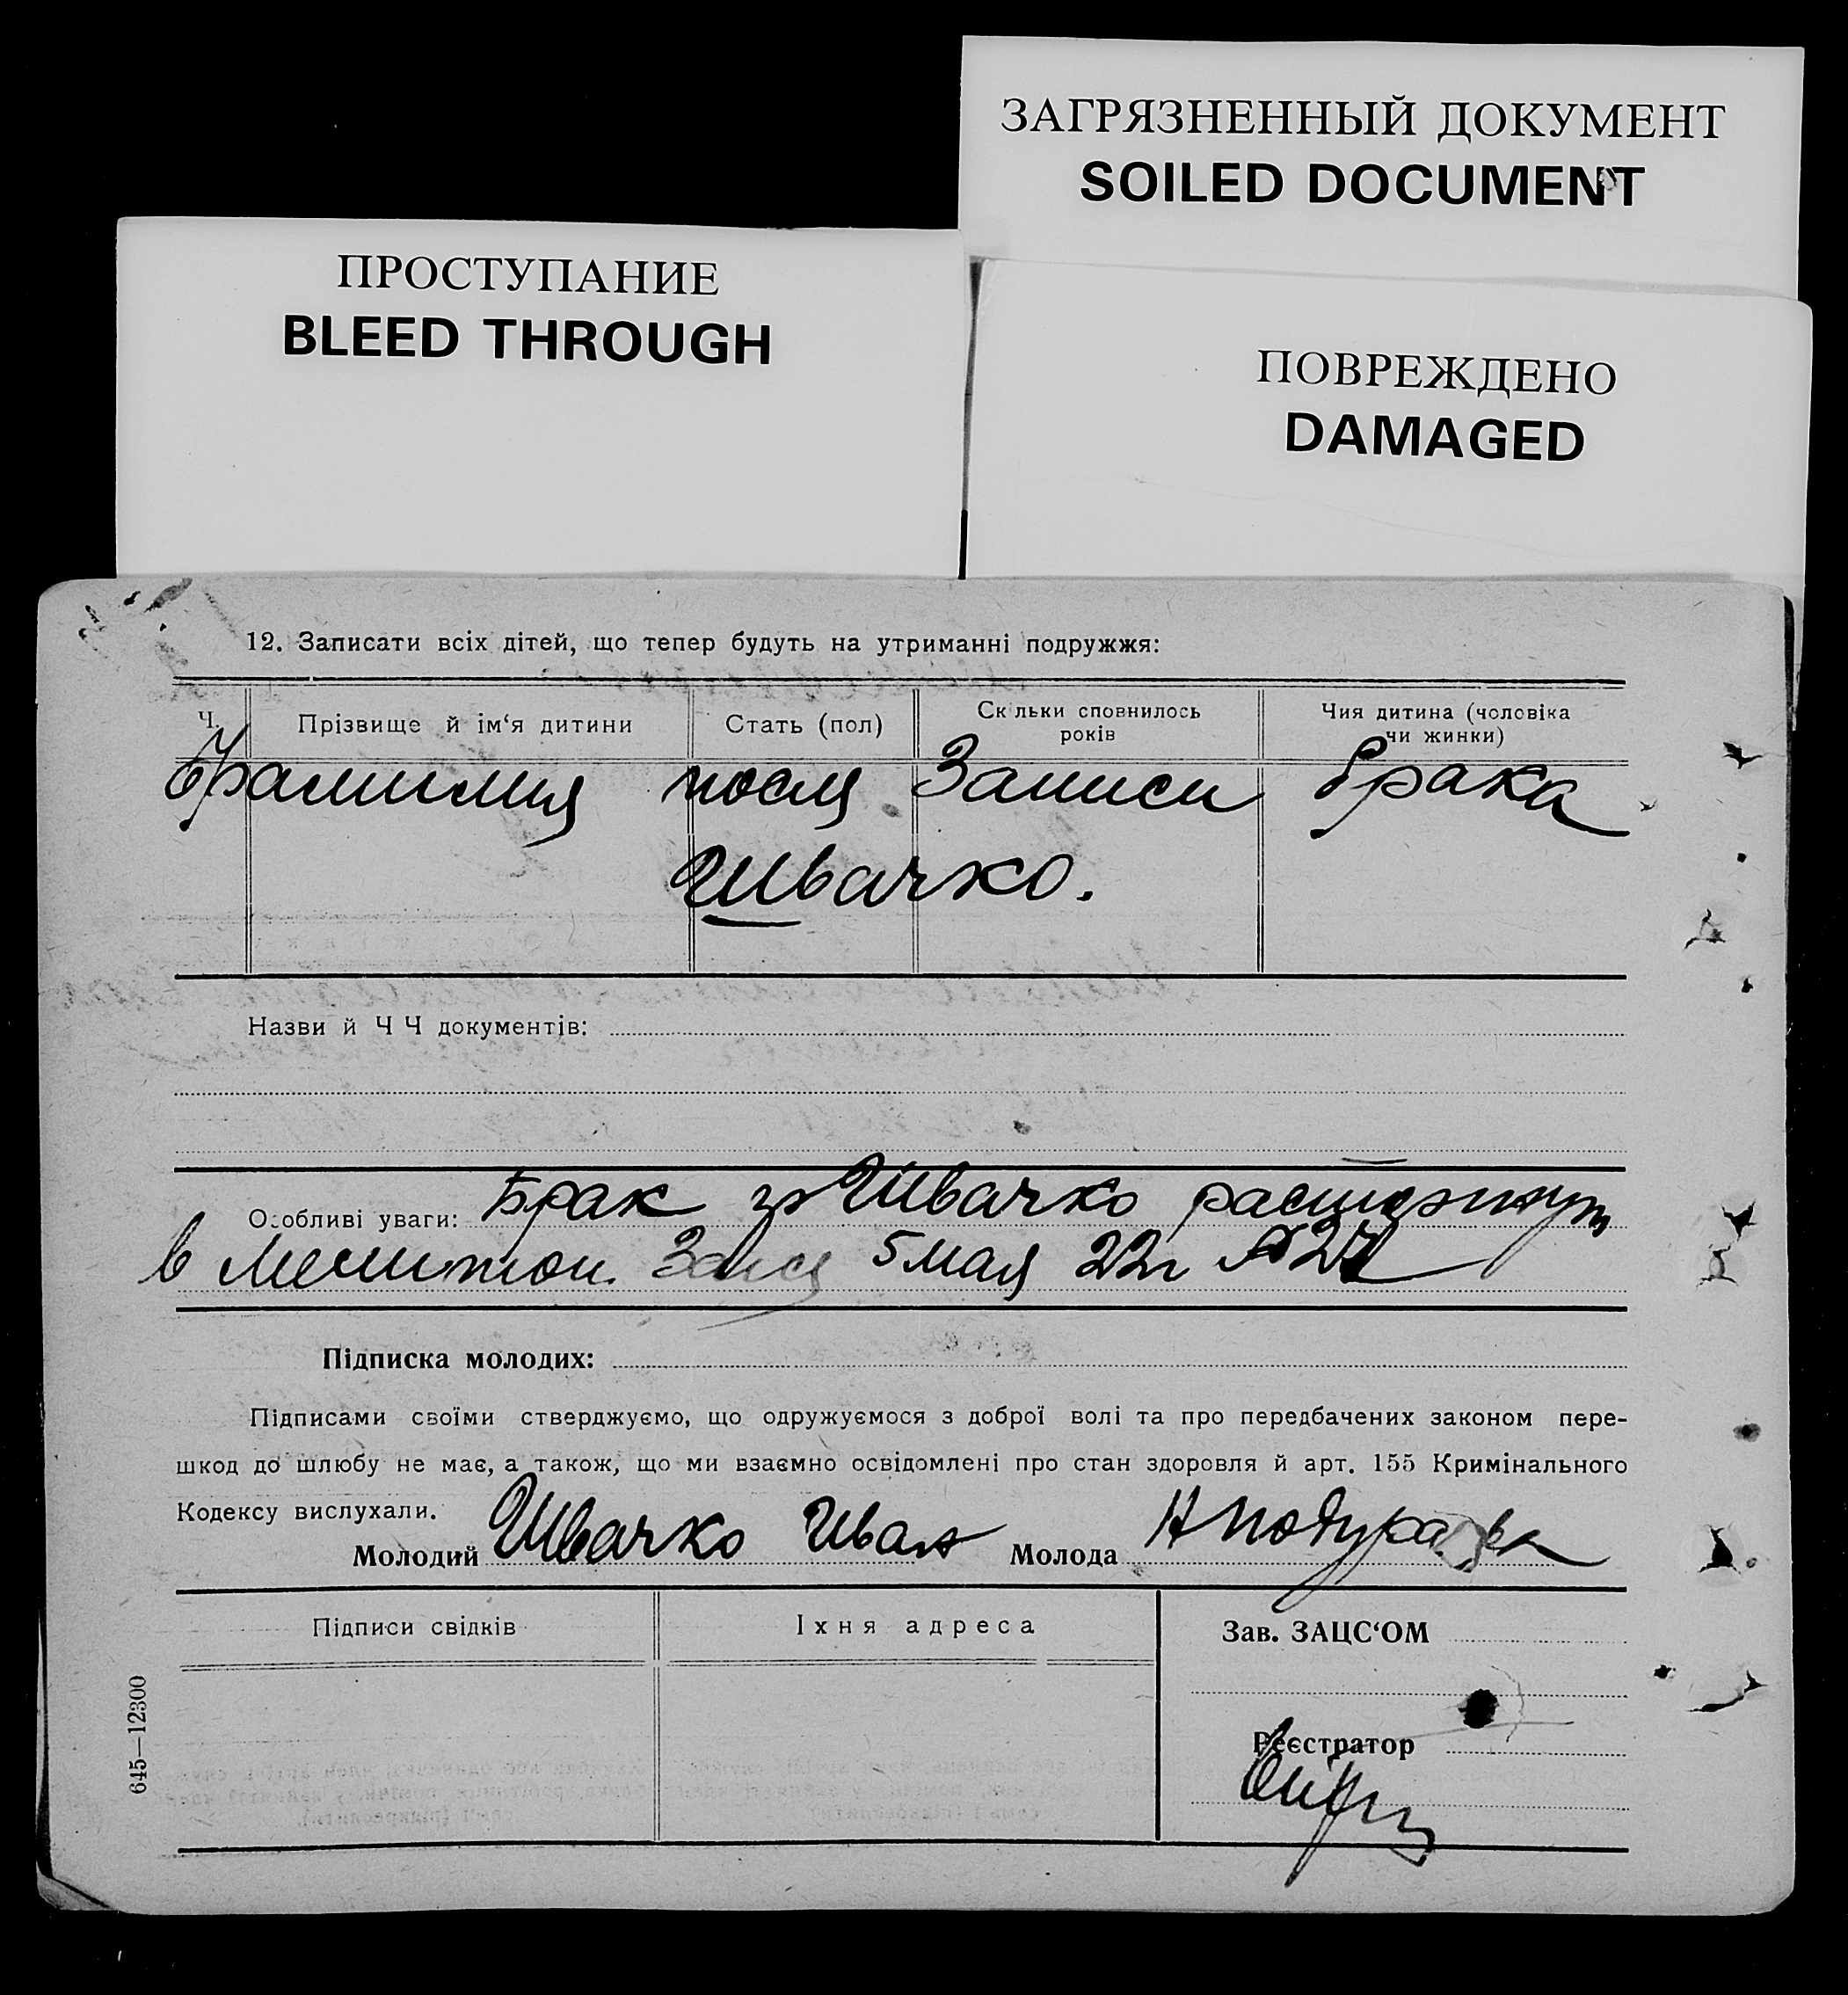 ЗАГРЯЗНЕННЫЙ ДОКУМЕНТ
SOILED DOCUMENT
ПРОСТУПАНИЕ
BLEED THROUGH
ПОВРЕЖДЕНО
DAMAGED
12. Записати всіх дітей, що тепер будуть на утриманні подружжя:
Ч. Прізвище й ім‘я дитини Стать (пол) Ск льки сповнилось років Чия дитина (чоловіка чи жинки)
Фамилия посля Записи брака
Швачко.
Назви й Ч Ч документів:
Особливі уваги: Брак гр Швачко расторгнут
в Мелитоп. Загсе 5 мая 22г №
Підписка молодих:
Підписами своїми стверджуємо, що одружуємося з доброї волі та про передбачених законом пере-
шкод до шлюбу не має, а також, що ми взаємно освідомлені про стан здоровля й арт. 155 Кримінального
Кодексу вислухали.
Молодий Швачко Иван Молода Н
Підписи свідків Іхня адреса Зав. ЗАЦС‘ОМ
Реєстратор
645—12300